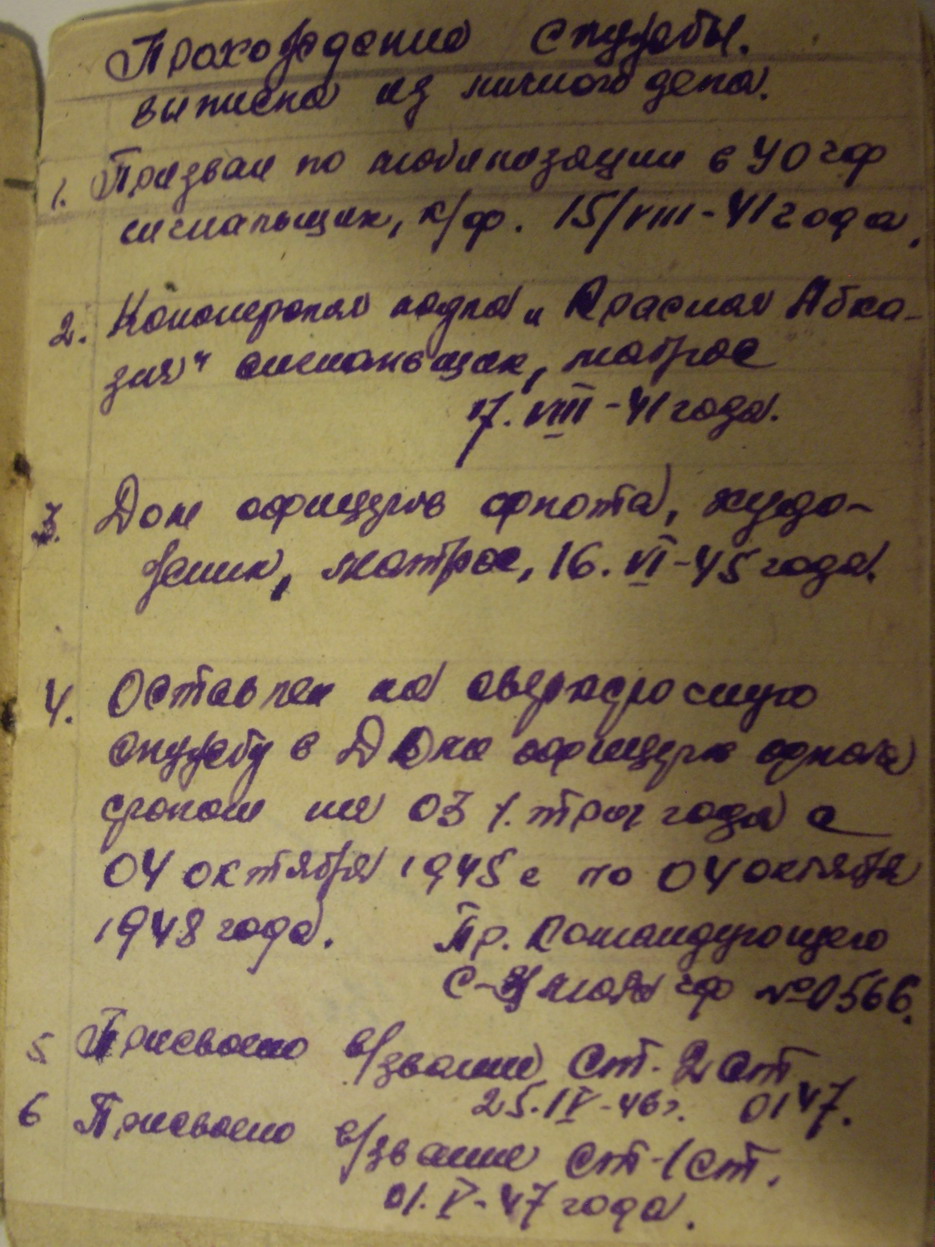 Прохождение службы.
выписка из личного дела.
1. Призван по мобилизации в ЧО ЧФ
сигнальщик, к/ф. 15/VIII-41 года,
2. Канонерская лодка "Красная Абха-
зия" сигнальщик, матрос
17. VIII-41 года.
3. Дом офицеров флота, худо-
жник, матрос, 16. VI-45 года.
4. Оставлен на сверхсрочную
службу в Доме офицеров флота
сроком на 03 /. три/ года с
04 октября 1945 г по 04 октября
1948 года. Пр. Командующего
ЧФ №0566.
5 Присвоено в/звание ст. 2 ст
25.IV-46г. 0147.
6 Присвоено в/звание ст-1 ст.
01. V-47 года.